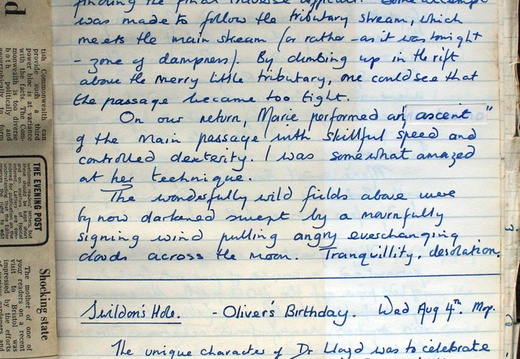 finding the final traverse difficult. Some attempt
was made to follow the tributary stream, which
meets the main stream (or rather - as it was tonight
- zone of dampness). By climbing up in the rift
above the merry little tributary, one could see that
the passage became too tight.
On our return, Marie performed an "ascent"
of the main passage with skillful speed and
controlled dexterity. I was somewhat amazed
at her technique.
The wonderfully wild fields above were
by now darkened swept by a mournfully
signing wind pulling angry everchanging
clouds across the moon. Tranquillity, desolation.
Swildon's Hole. - Oliver's Birthday. Wed Aug 4th.
The unique character of Dr Lloyd was to celebrate
d
tish Commonwealth can
provide most third
power bloc is at variance
with the facts. The Com-
monwealth is too diverse
both politically and
THE EVENING POST
Shocking state
The mother of one of
your readers on a recent
visit to Bristol was
impressed by the efforts